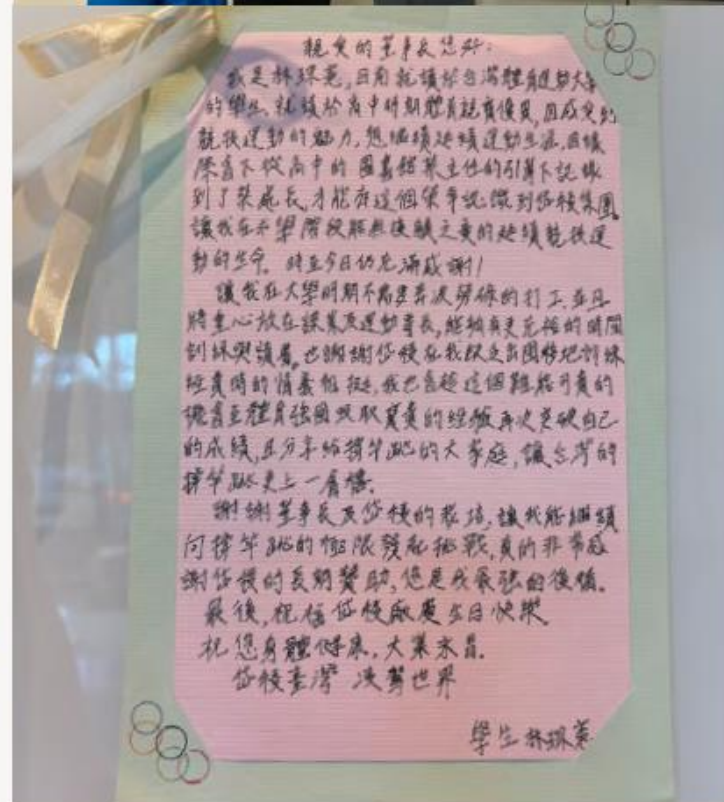 親愛的董事長您好:
我是林珠菀,目前就讀於台灣體育運動大學
的學生,就讀於高中時期體育就資優異,因感受到
競技運動的魅力,想繼續延續運動生涯,因緣
際會下從高中的圖書館蔡主任的引薦下認識
到了葉處長,才能在這個榮幸認識到岱稜集團,
讓我在大學階段能無後顧之憂的延續競技運
動的生命。時至今日仍充滿感謝!
讓我在大學時期不需要奔波勞碌的打工,並且
將重心放在課業及運動專長,能擁有更充裕的時間
訓練與讀書,也謝謝岱稜在我缺乏出國移地訓練
經費時的情義相挺,我也會趁這個難能可貴的
機會至體育強國吸取寶貴的經驗再次突破自己
的成績,且分享給撐竿跳的大家庭,讓台灣的
撐竿跳更上一層樓。
謝謝董事長及岱稜的栽培,讓我能繼續
向撐竿跳的極限發起挑戰,真的非常感
謝岱稜的長期贊助,您是我最強的後盾。
最後,祝福岱稜廠慶生日快樂。
祝您身體健康,大業永昌。
岱稜臺灣 決勝世界
學生 林珠菀